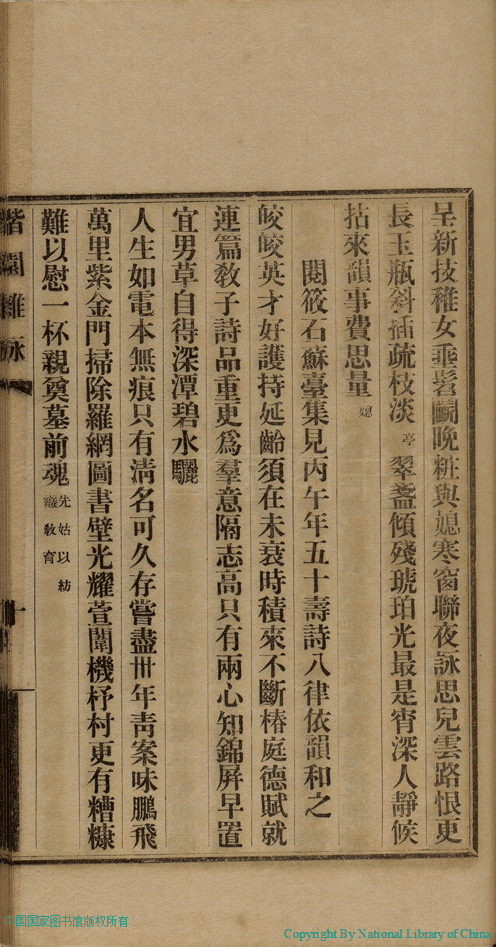 呈新技稚女垂髫鬬晚粧與媳寒窗聯夜詠思兒雲路恨更
長玉瓶斜插疏枝淡亭翠盞傾殘琥珀光最是宵深人靜候
拈來韻事費思量媳
閱筱石蘇臺集見丙午年五十壽詩八律依韻和之
皎皎英才好護持延齡須在未衰時積來不斷椿庭德賦就
連篇教子詩品重更爲羣意隔志高只有兩心知錦屏早置
宜男草自得深潭碧水驪
人生如電本無痕只有淸名可久存嘗盡卅年靑案味鵬飛
萬里紫金門掃除羅網圖書壁光耀萱闈機杼村更有糟糠
難以慰一杯親奠墓前魂先姑以紡織教育
偕園雜詠
十
国国家图书馆版权所有
Copyright By National Library of China